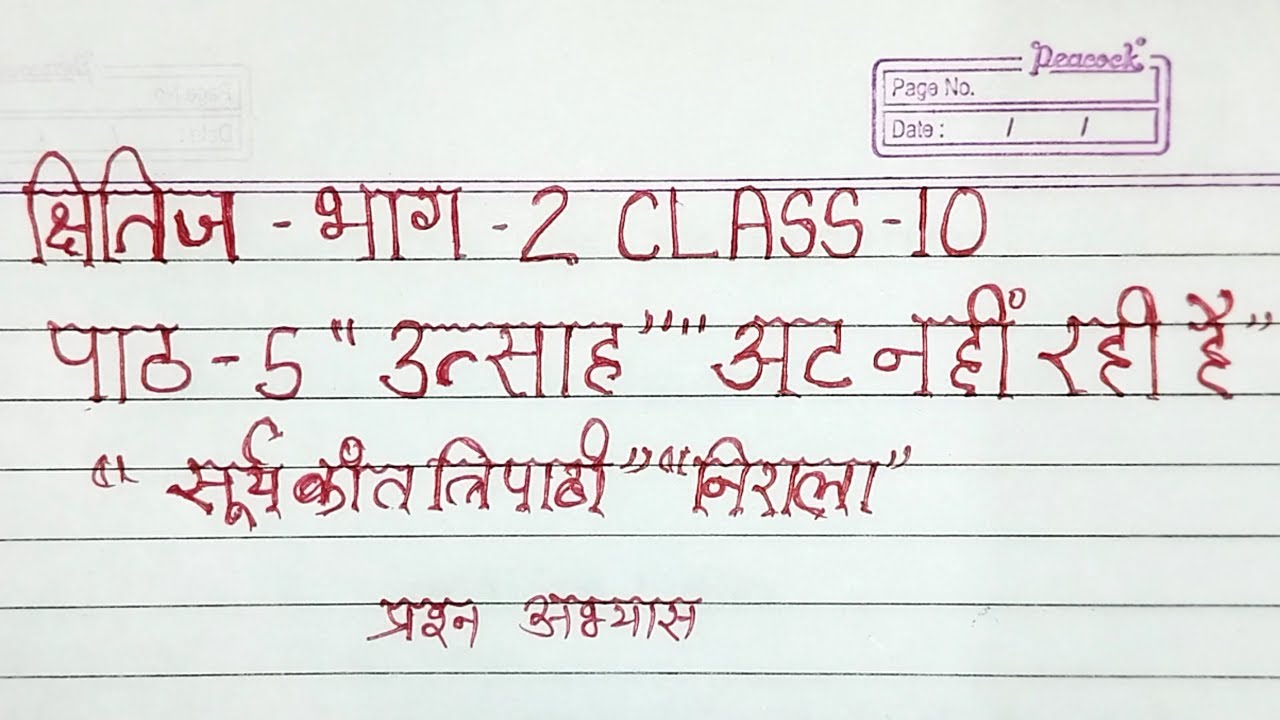 Peacock
Page No.
Date : / /
क्षितिज - भाग - 2 CLASS-10
पाठ - 5 "उत्साह" "अट नहीं रही है"
"सूर्यकांत त्रिपाठी" "निराला"
प्रश्न अभ्यास